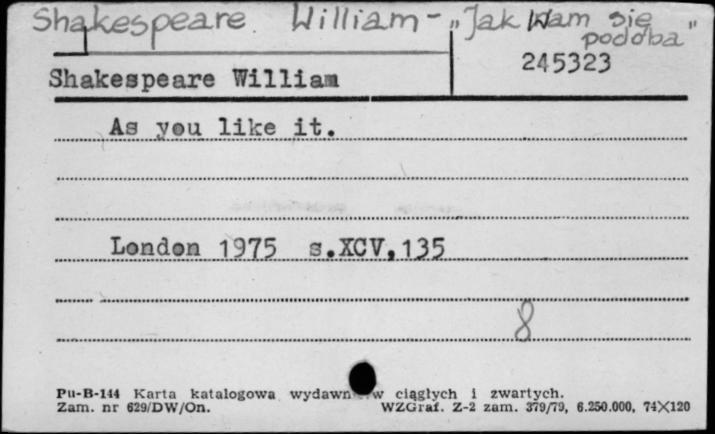 Shakespeare William - „Jak Wam się
podoba"
245323
Shakespeare William
As you like it.
London 1975 s.XCV,135
8
Pu-B-144 Karta katalogowa wydawn w ciągłych i zwartych.
Zam. nr 629/DW/On. WZGraf. Z-2 zam. 379/79, 6.250.000, 74X120